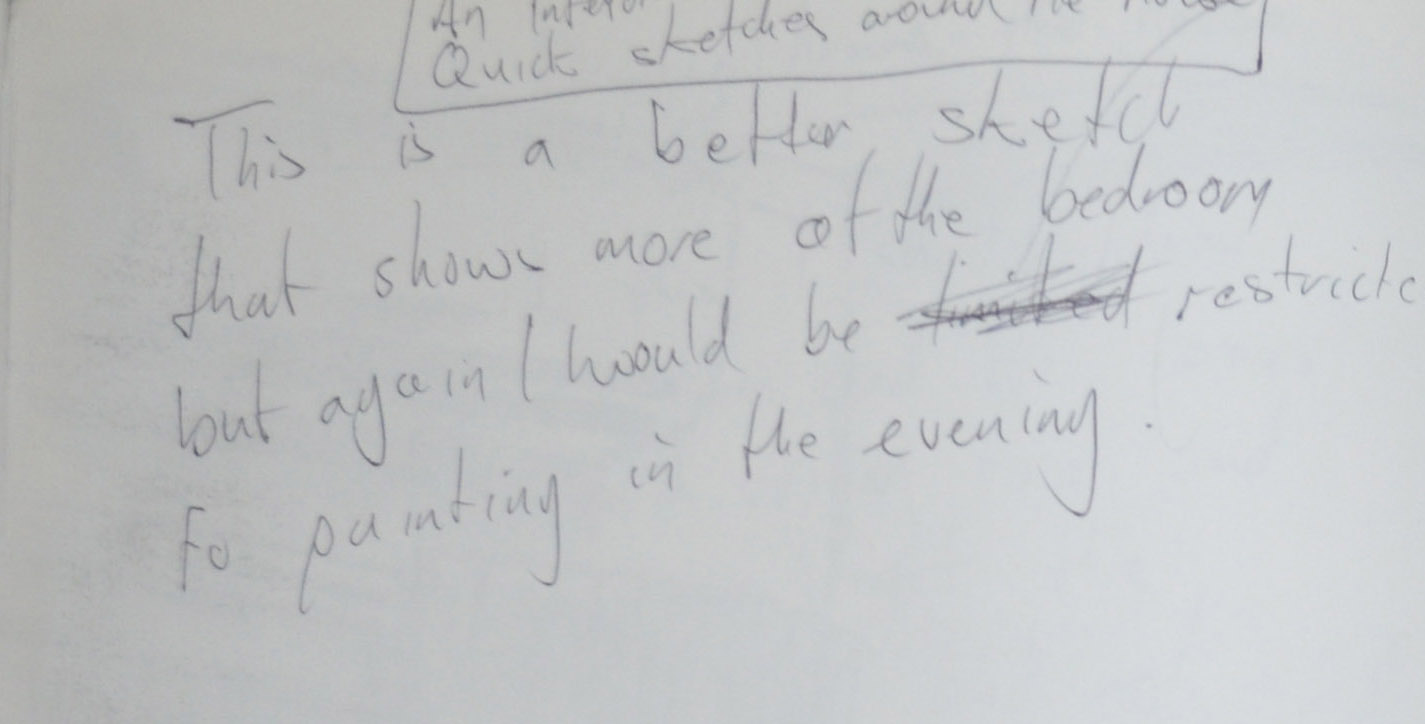 An
Quick sketches around the
This is a better sketch
that shows more of the bedroom
but again I would be limited restricte
to painting in the evening.